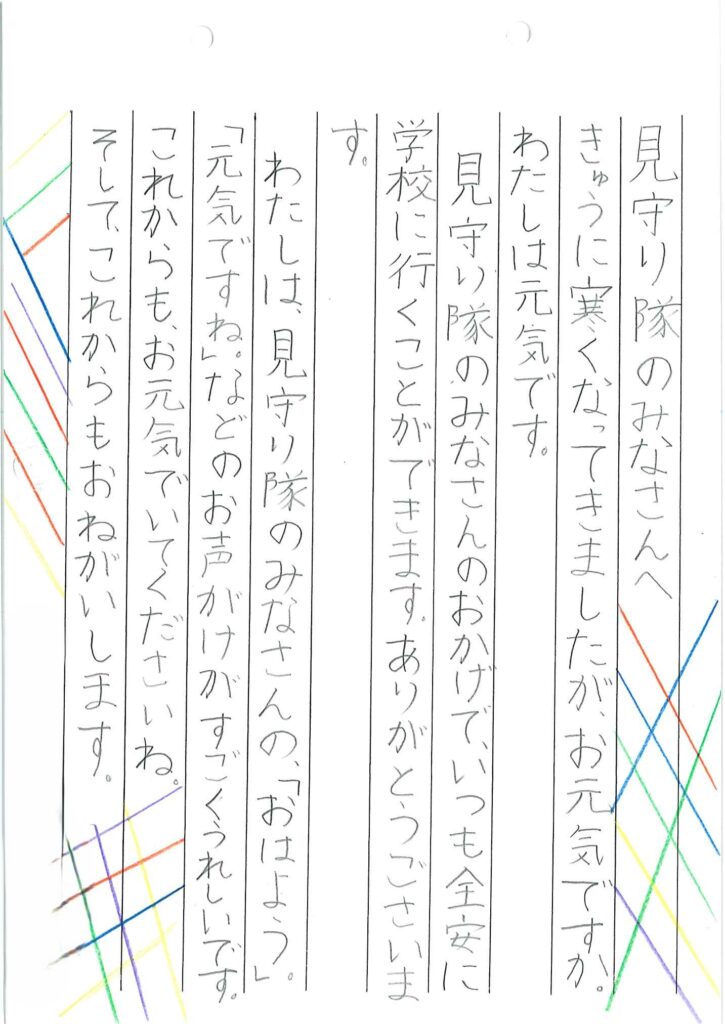 見守り隊のみなさんへ
きゅうに寒くなってきましたが、お元気ですか。
わたしは元気です。
見守り隊のみなさんのおかげで、いつも全安に
学校に行くことができます。ありがとうございま
す。
わたしは、見守り隊のみなさんの、「おはよう」。
「元気ですね」。などのお声がけがすごくうれしいです。
これからも、お元気でいてくださいね。
そして、これからもおねがいします。